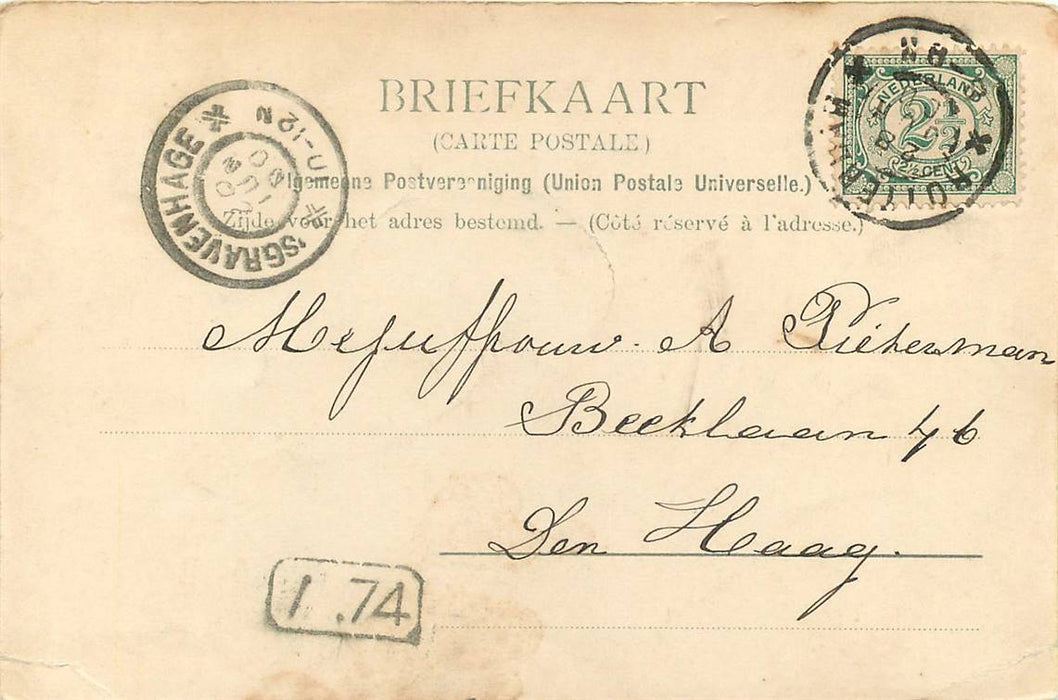 BRIEFKAART
(CARTE POSTALE)
lgemeene Postvereeniging (Union Postale Universelle.)
Zijde voor het adres bestemd. — (Côté réservé à l'adresse.)
NEDERLAND
2½
2½ CENT
'SGRAVENHAGE
10-12 N
Mejuffrouw. A Pieterman
Beeklaan 46
Den Haag.
1.74